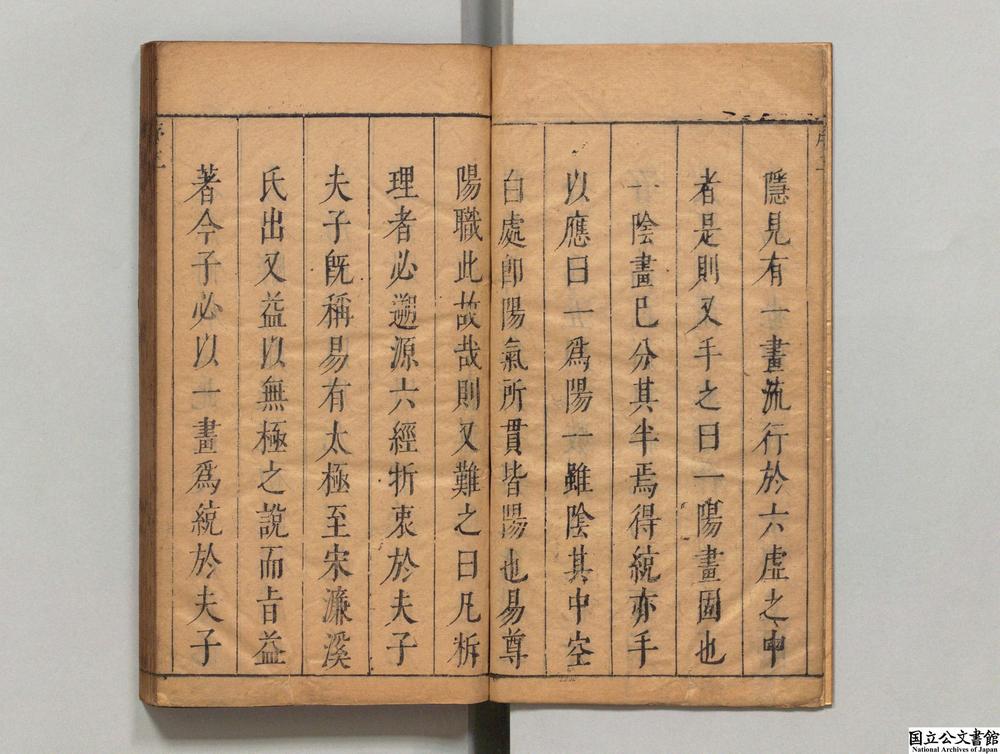 隱見有一畫流行於六虛之中
者是則又手之曰一陽畫固也
一陰畫已分其半焉得統亦手
以應曰一爲陽一雖陰其中空
白處卽陽氣所貫皆陽也易尊
陽職此故哉則又難之曰凡柝
理者必遡源六經折衷於夫子
夫子旣稱易有太極至宋濂溪
氏出又益以無極之說而旨益
著今子必以一畫爲統於夫子
国立公文書館
National Archives of Japan